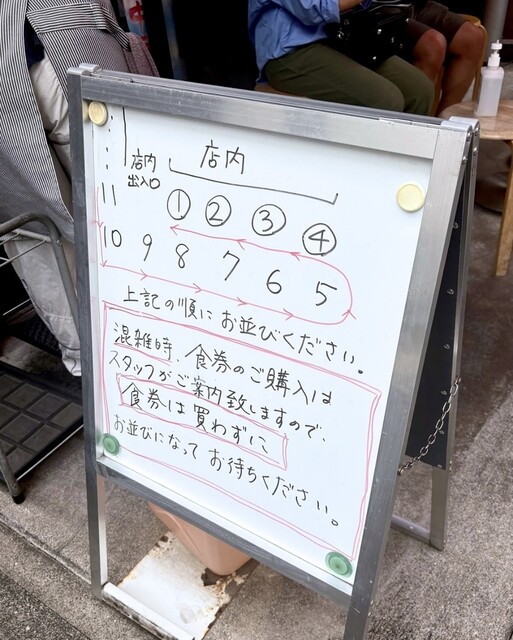 店内
店内
出入口
① ② ③ ④
11
10 9 8 7 6 5
上記の順にお並びください。
混雑時、食券のご購入は
スタッフがご案内致しますので、
食券は買わずに
お並びになってお待ちください。